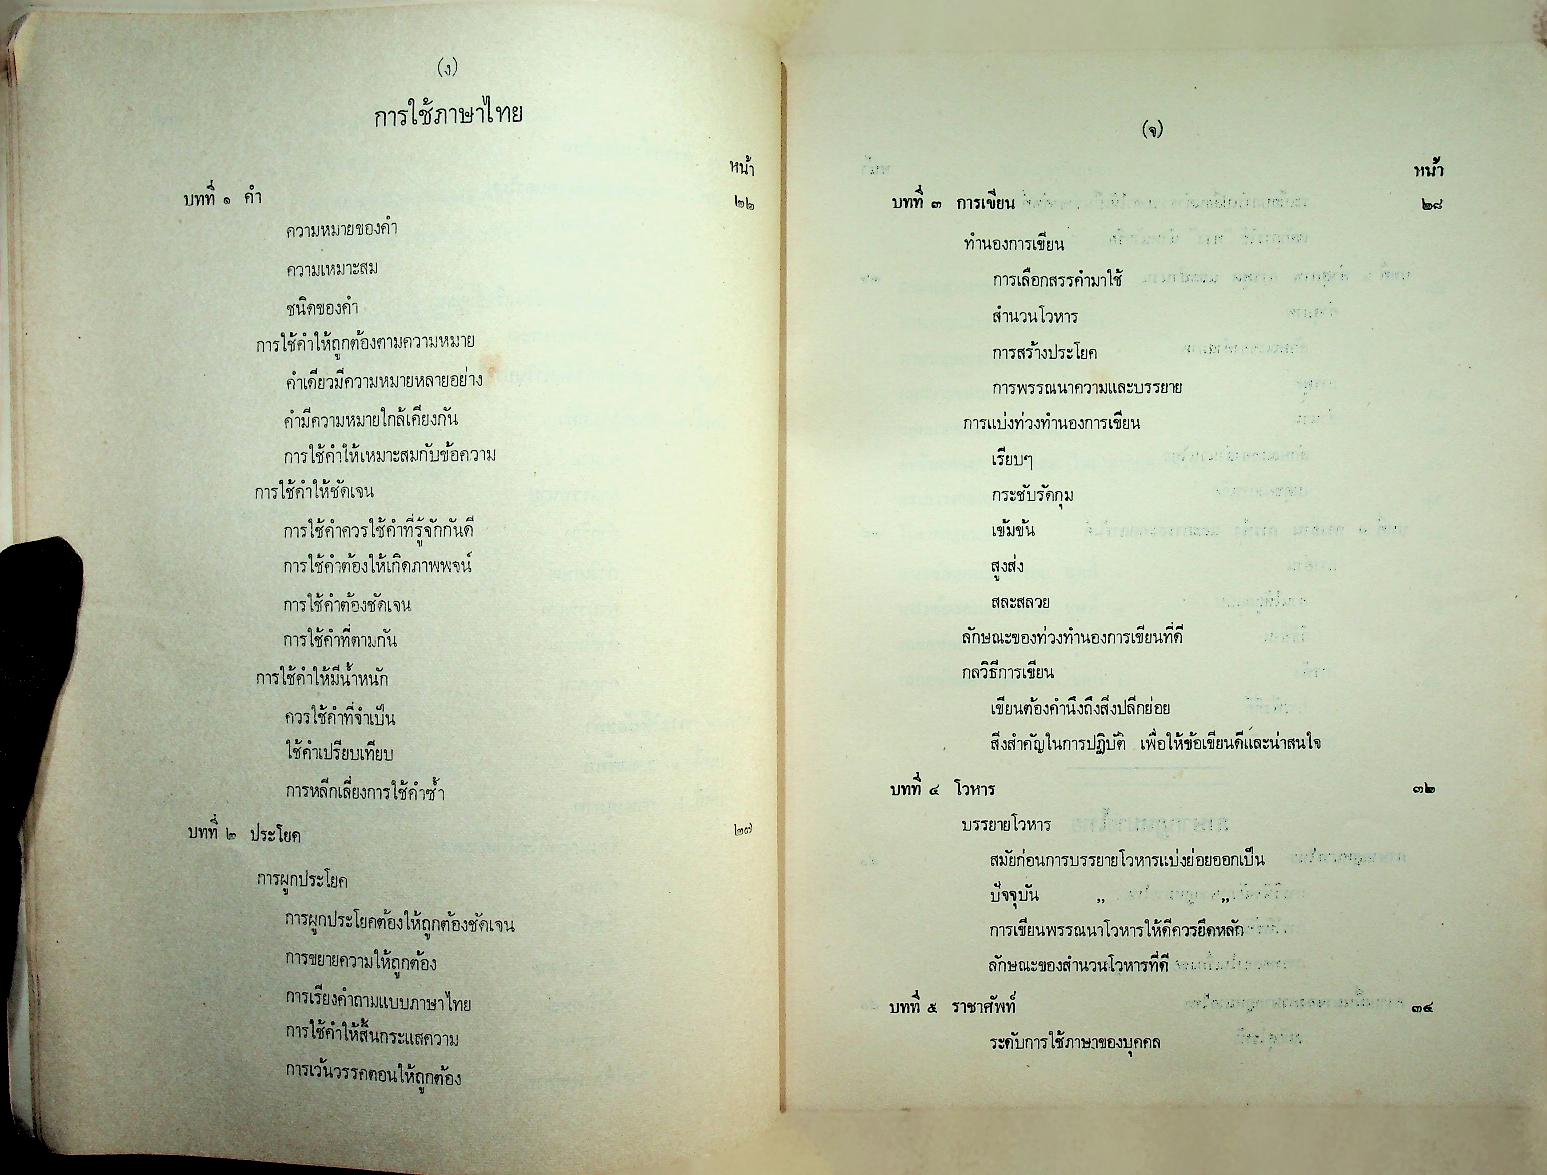 (ง)
การใช้ภาษาไทย
หน้า
บทที่ ๑ คำ ๒๒
ความหมายของคำ
ความเหมาะสม
ชนิดของคำ
การใช้คำให้ถูกต้องตามความหมาย
คำเดียวมีความหมายหลายอย่าง
คำมีความหมายใกล้เคียงกัน
การใช้คำให้เหมาะสมกับข้อความ
การใช้คำให้ชัดเจน
การใช้คำควรใช้คำที่รู้จักกันดี
การใช้คำต้องให้เกิดภาพพจน์
การใช้คำต้องชัดเจน
การใช้คำที่ตามกัน
การใช้คำให้มีน้ำหนัก
ควรใช้คำที่จำเป็น
ใช้คำเปรียบเทียบ
การหลีกเลี่ยงการใช้คำซ้ำ
บทที่ ๒ ประโยค ๒๗
การผูกประโยค
การผูกประโยคต้องให้ถูกต้องชัดเจน
การขยายความให้ถูกต้อง
การเรียงคำถามแบบภาษาไทย
การใช้คำให้สิ้นกระแสความ
การเว้นวรรคตอนให้ถูกต้อง
(จ)
หน้า
บทที่ ๓ การเขียน ๒๘
ทำนองการเขียน
การเลือกสรรคำมาใช้
สำนวนโวหาร
การสร้างประโยค
การพรรณนาความและบรรยาย
การแบ่งท่วงทำนองการเขียน
เรียบๆ
กระชับรัดกุม
เข้มข้น
สูงส่ง
สละสลวย
ลักษณะของท่วงทำนองการเขียนที่ดี
กลวิธีการเขียน
เขียนต้องคำนึงถึงสิ่งปลีกย่อย
สิ่งสำคัญในการปฏิบัติ เพื่อให้ข้อเขียนดีและน่าสนใจ
บทที่ ๔ โวหาร ๓๒
บรรยายโวหาร
สมัยก่อนการบรรยายโวหารแบ่งย่อยออกเป็น
ปัจจุบัน ,, ,,
การเขียนพรรณนาโวหารให้ดีควรยึดหลัก
ลักษณะของสำนวนโวหารที่ดี
บทที่ ๕ ราชาศัพท์ ๓๔
ระดับการใช้ภาษาของบุคคล